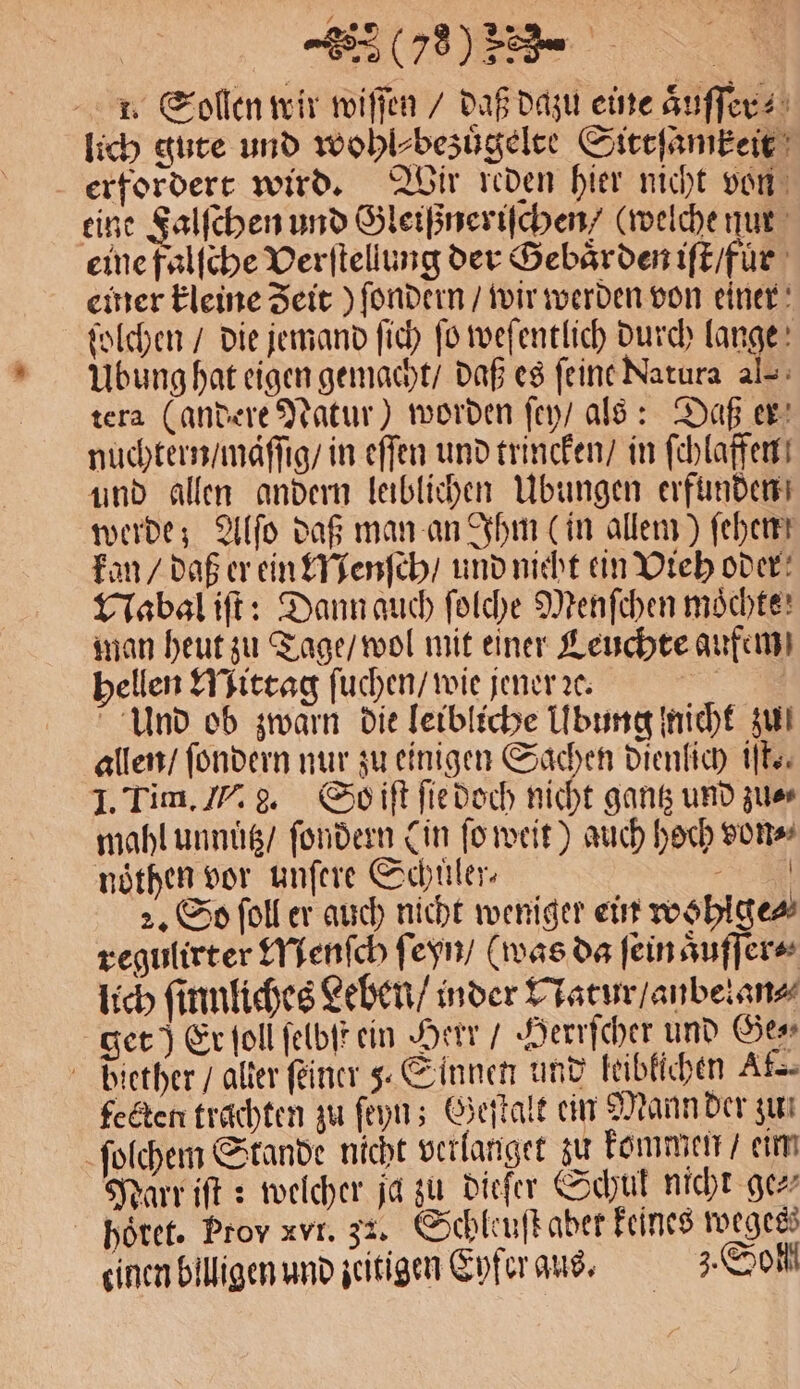 (78)
1. Sollen wir wiſſen / daß dazu eine aͤuſſer⸗
lich gute und wohl⸗bezuͤgelte Sittſamkeit
erfordert wird. Wir reden hier nicht von
eine Falſchen und Gleißneriſchen / (welche nur
eine falſche Verſtellung der Gebaͤrden iſt / fuͤr
einer kleine Zeit ) ſondern / wir werden von einer
ſolchen / die jemand ſich ſo weſentlich durch lange
Ubung hat eigen gemacht / daß es ſeine Natura al-
tera (andere Natur) worden ſey / als : Daß er
nuchtern / maͤſſig / in eſſen und trincken / in ſchlaffen
und allen andern leiblichen Ubungen erfunden
werde; Alſo daß man an Ihm (in allem) ſehen
kan / daß er ein Menſch / und nicht ein Vieh oder
Nabal iſt : Dann auch ſolche Menſchen moͤchte
man heut zu Tage / wol mit einer Leuchte aufem
hellen Mittag ſuchen / wie jener ꝛc.
Und ob zwarn die leibliche Ubung nicht zu
allen / ſondern nur zu einigen Sachen dienlich iſt.
I. Tim. IV. 8. So iſt ſie doch nicht gantz und zu⸗
mahl unnuͤtz / ſondern (in ſo weit) auch hoch von⸗
noͤthen vor unſere Schuͤler.
2. So ſoll er auch nicht weniger ein wohlge⸗
regulirter Menſch ſeyn / (was da ſein aͤuſſer⸗
lich ſinnliches Leben / in der Natur / anbelan⸗
get) Er ſoll ſelbſt ein Herr / Herrſcher und Ge⸗
biether / aller ſeiner 5. Sinnen und leiblichen Af-
fecten trachten zu ſeyn; Geſtalt ein Mann der zu
ſolchem Stande nicht verlanget zu kommen / ein
Narr iſt : welcher ja zu dieſer Schul nicht ge⸗
hoͤret. Prov XVI. 32. Schleuſt aber keines weges
einen billigen und zeitigen Eyfer aus. 3. Soll